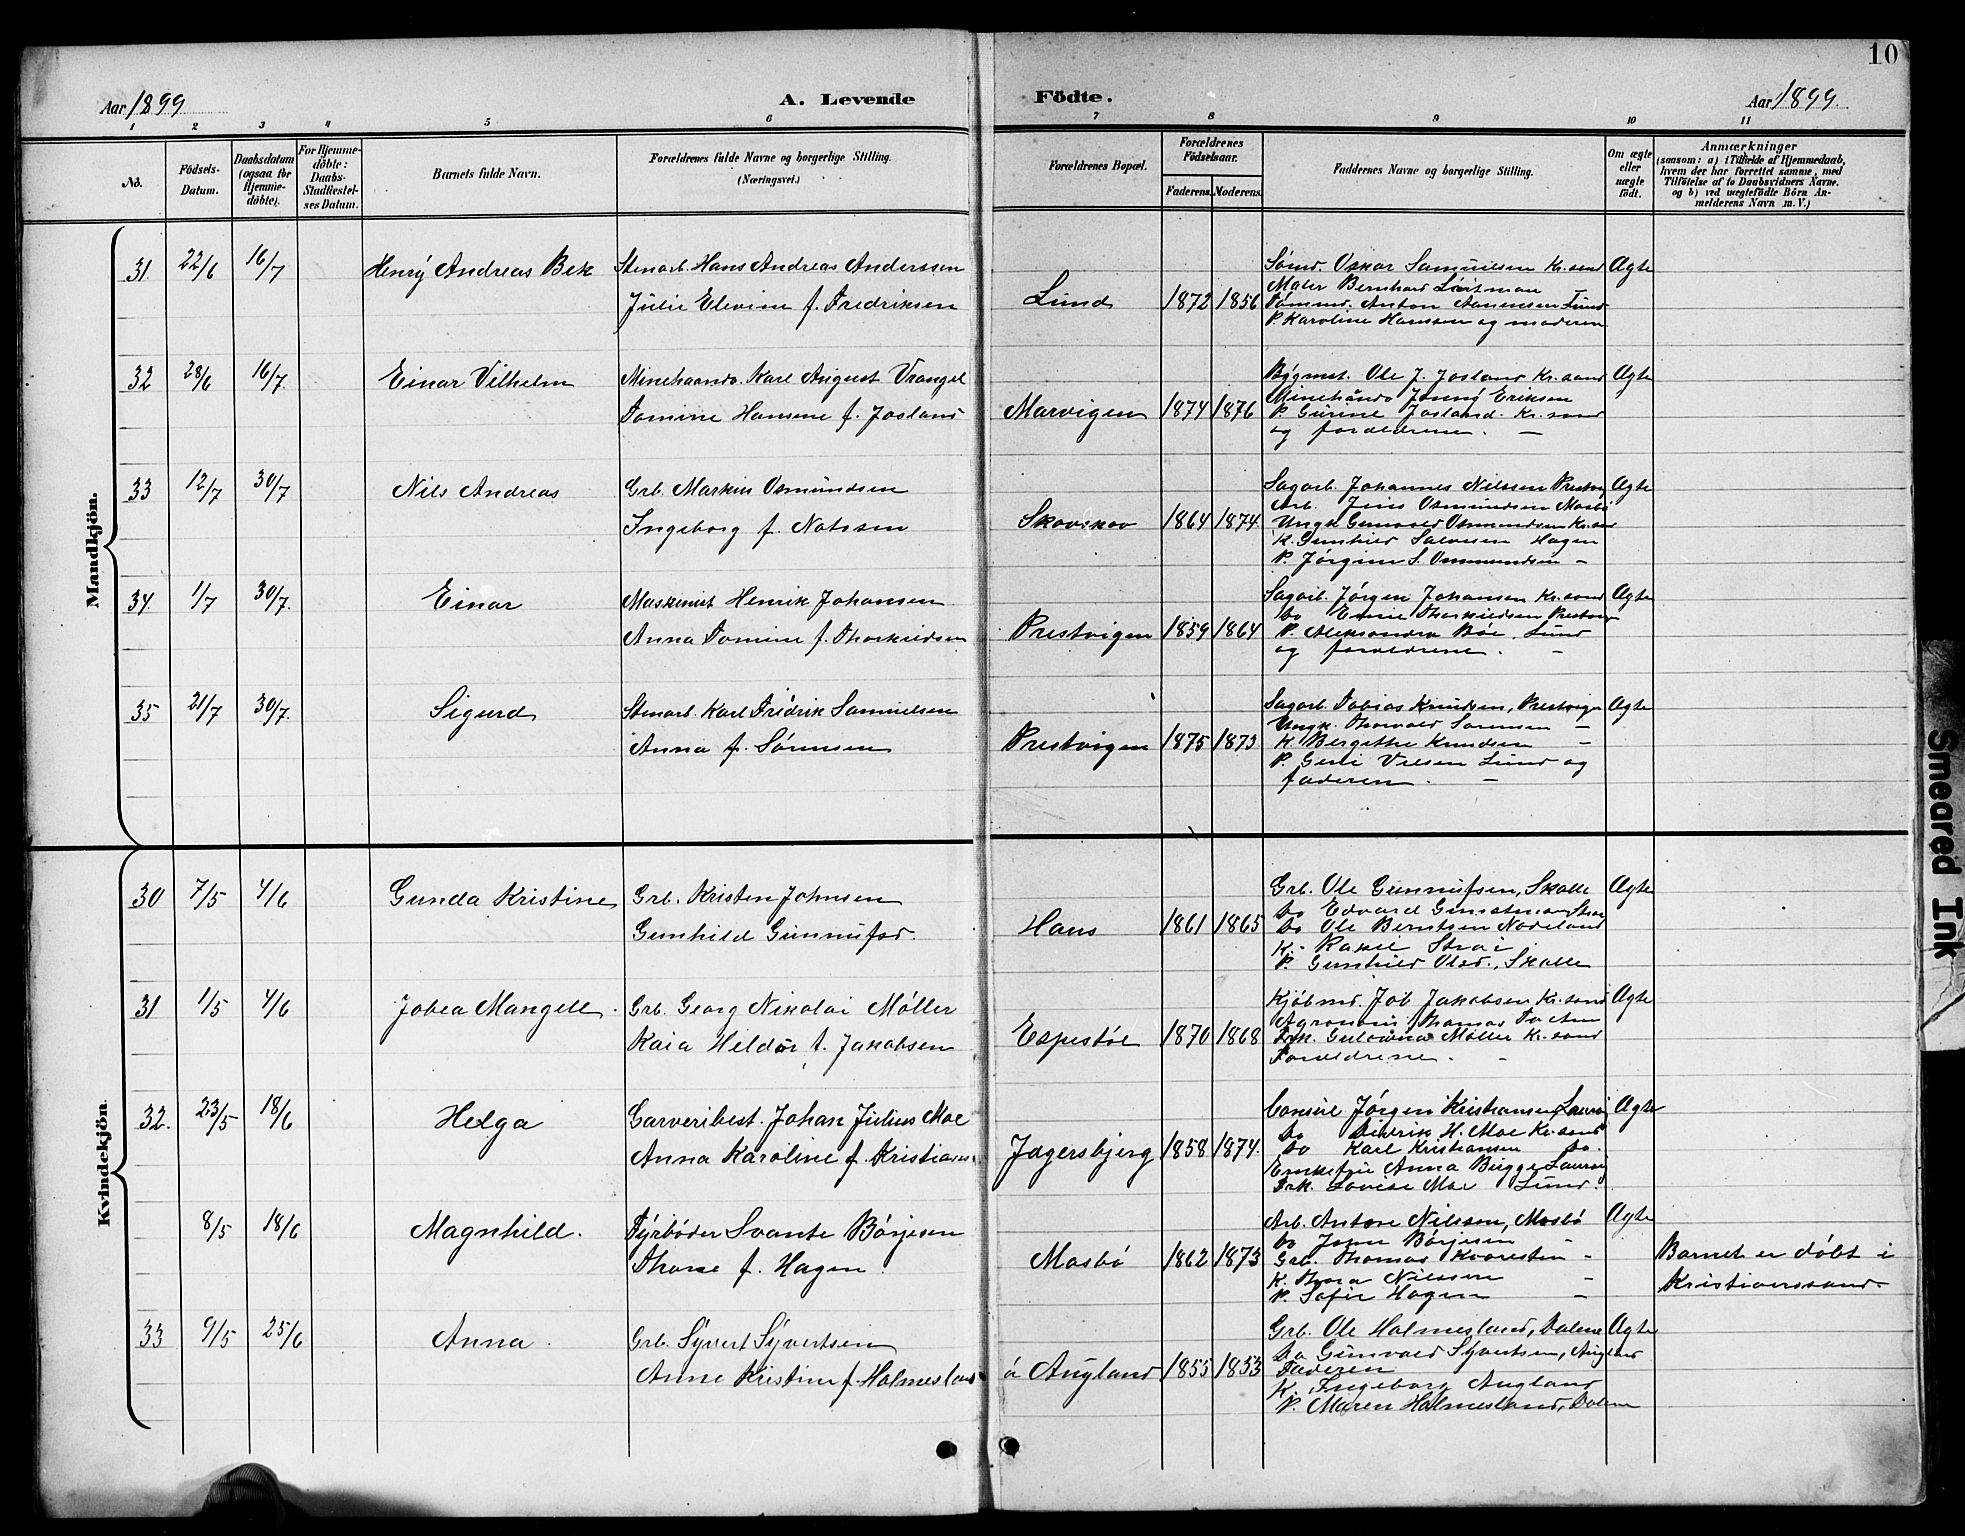 10
Aar 1899
A. Levende Födte.
Aar 1899
1 2 3 4 5 6 7 8 9 10 11
No.
Födsels-Datum.
Daabsdatum (ogsaa for Hjemme-döbte).
For Hjemme-döbte: Daabs-Stadfæstel-ses Datum.
Barnets fulde Navn.
Forældrenes fulde Navne og borgerlige Stilling.
(Næringsvei.)
Forældrenes Bopæl.
Forældrenes Födselsaar.
Faderens. Moderens.
Faddernes Navne og borgerlige Stilling.
Om ægte eller uægte födt.
Anmærkninger
(saasom: a) i Tilfælde af Hjemmedaab,
hvem der har forrettet samme, med
Tilföielse af to Daabsvidners Navne,
og b) ved uægtefödte Börn An-
melderens Navn m. V.)
Mandkjön.
31. 22/6 16/7 Henrÿ Andreas Bek
Stenarb. Hans Andreas Anderssen
Julie Elevine f. Fredriksen
Lund 1872 1856
Sømd. Oskar Samuelsen Kr.sand
Maler Bernhard
Tømmd. Anton Aanensen Lund
P. Karoline Hanssen og moderen
Ægte
32 28/6 16/7 Einar Vilhelm
Minehaandv. Karl August Vrangel
Tomine Hamine f. Josland
Marvigen 1874 1876
Bÿgmst. Ole J. Josland Kr.sand
Minehåndv Jenny Eriksen
P. Gurine Josland. Kr.sand
og forældrene. —
Ægte
33 12/7 30/7 Nils Andreas
Grb. Markus Osmundsen
Ingeborg f.
Skovskov 1864 1874
Sagarb. Johannes Nilssen Prestvig
Arb. Jens Osmundsen Mosbÿ
Ungk. Gunvald Osmundsen Kr.sand
K. Gunhild Salvesen Hagen
P. Jørgine S. Osmundsen —
Ægte
34. 1/7 30/7. Einar
Maskinist Henrik Johansen
Anna Tomine f. Thorkildsen
Prestvigen 1859 1864
Sagarb. Jørgen Johansen Kr.sand
do Thorkildsen Prestvig
P. Aleksandra Bøe, Lund
og forældrene. —
Ægte
35 21/7 30/7. Sigurd
Stenarb. Karl Fredrik Samuelsen
Anna f. Sørensen
Prestvigen 1875 1873
Sagarb. Tobias Knudsen, Prestvigen
Ungk. Thorvald Sørensen —
K. Bergithe Knudsen —
P. Lund og
faderen. —
Ægte
Kvindekjön.
30 7/5 4/6 Gunda Kristine
Grb. Kristen Johnsen
Gunhild Gunnufsd.
Haus 1861 1865
Grb. Ole Gunnufsen, Skalle
do Edvard
do Ole Berntsen Nodeland
K. Rakel Strai
P. Gunhild Olsd., Skalle
Ægte
31 1/5 4/6 Jobea Mangele.
Grb. Georg Nikolai Møller
Kaia Heldør f. Jakobsen
Espestøl 1870 1868
Kjøbmd. Job Jakobsen Kr.sand
Agronom Thomas
Frk. Møller Kr.sand
Forældrene. —
Ægte
32. 23/5 18/6 Helga
Garveribest. Johan Julius Moe
Anna Karoline f. Kristiansen
Jægersbjerg 1858 1874.
Consul Jørgen Kristiansen Laurvig
do Didrik H. Moe Kr.sand
do Karl Kristiansen do.
Enkefru Anna Bugge Laurvig
Frk. Lovise Moe Lund.
Ægte
8/5 18/6 Magnhild.
Fÿrbøder Svante Børjesen
Thora f. Hagen.
Mosbÿ 1862 1873
Arb. Anton Nilssen, Mosbÿ
do John Børjesen —
Grb. Thomas —
K. Thora Nilssen —
P. Sofie Hagen —
Ægte
Barnet er døbt i
Kristianssand.
33 9/5 25/6 Anna.
Grb. Sÿvert Sÿvertsen
Anne Kristine f. Holmesland
å Augland 1855 1853
Grb. Ole Holmesland, Dalene
do Gunvald Sÿvertsen, Augland
Faderen
K. Ingeborg Augland
P. Maren Holmesland, Dalene
Ægte
Smeared Ink